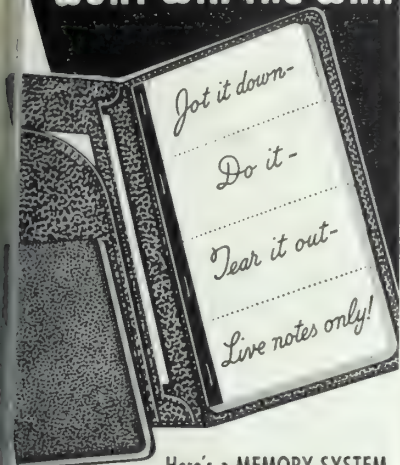 Jot it down-
Do it -
Tear it out-
Live notes only!
Here's a MEMORY SYSTEM